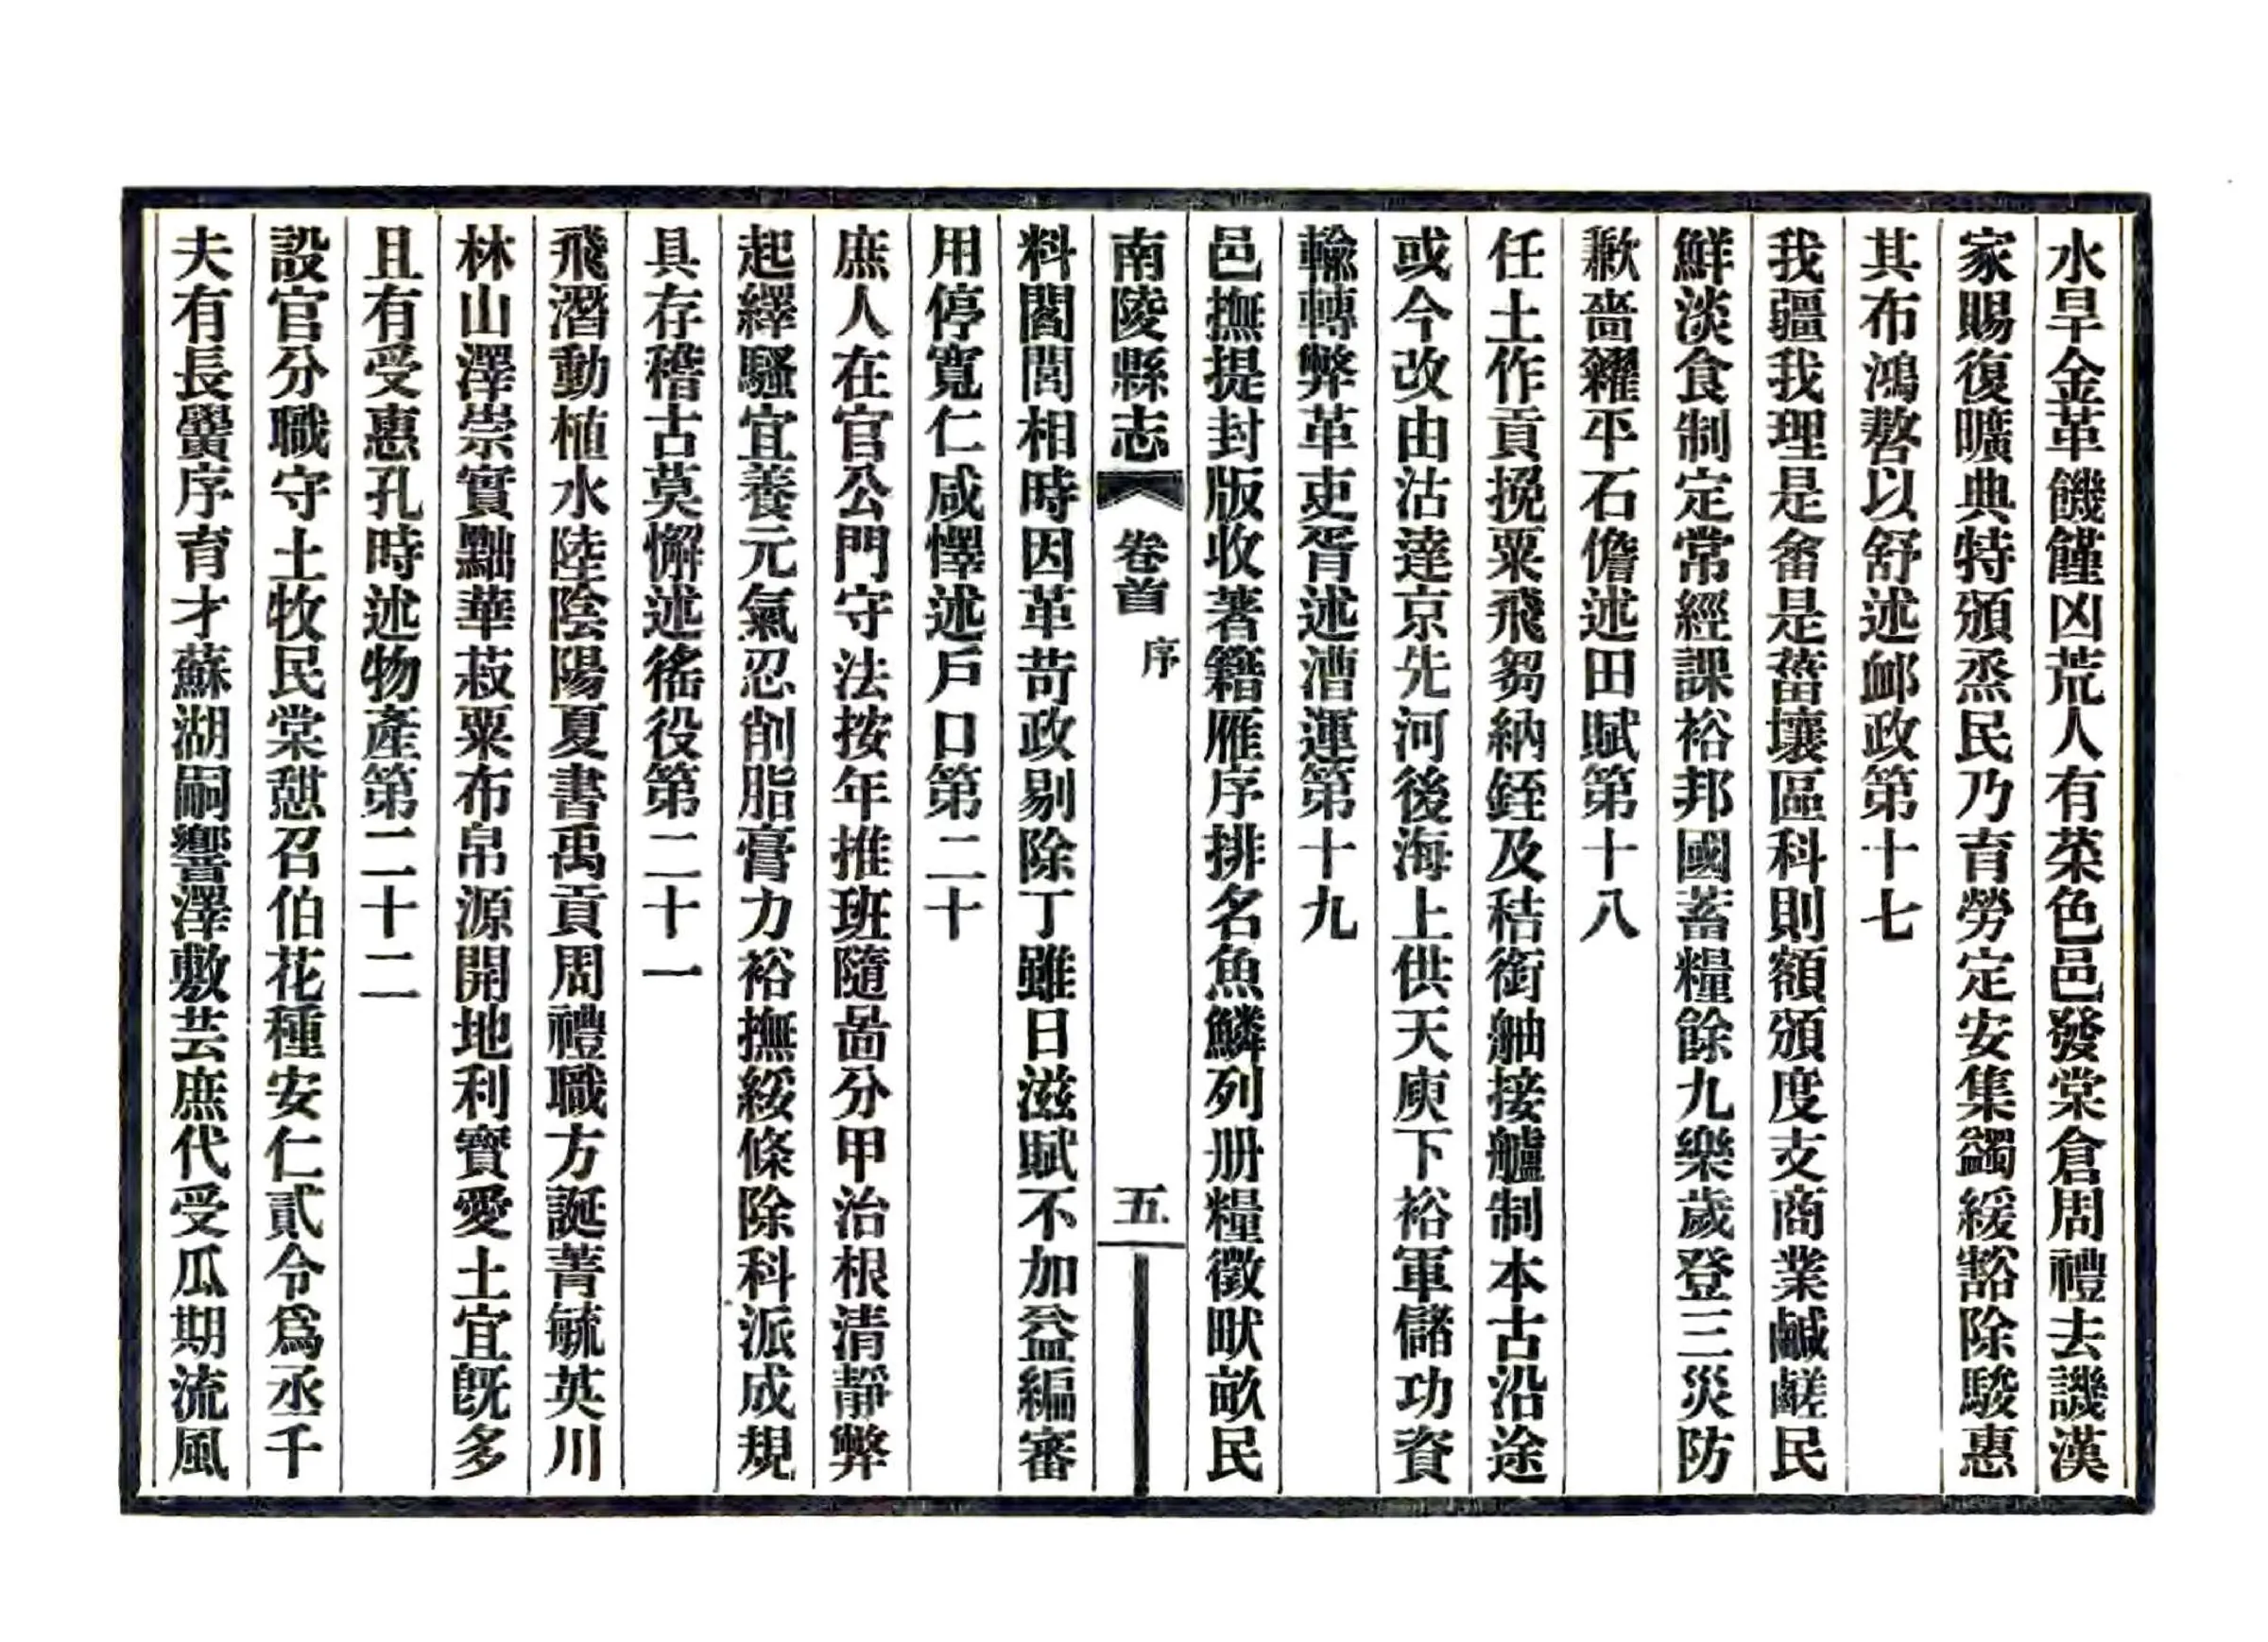 水旱金革饑饉凶荒人有菜色邑發棠倉周禮去譏漢
家賜復曠典特頒烝民乃育勞定安集蠲綏豁除駿惠
其布鴻嗸以舒述卹政第十七
我疆我理是畬是菑壤區科則額頒度支商業鹹鹺民
鮮淡食制定常經課裕邦國蓄糧餘九樂歲登三災防
歉嗇糶平石儋述田賦第十八
任土作貢挽粟飛芻納銍及秸銜舳接艫制本古沿途
或今改由沽達京先河後海上供天庾下裕軍儲功資
輸轉弊革吏胥述漕運第十九
邑撫提封版收著籍雁序排名魚鱗列册糧徵畎畝民
南陵縣志 卷首 序 五
料閭閻相時因革苛政剔除丁雖日滋賦不加益編審
用停寬仁咸懌述戶口第二十
庶人在官公門守法按年推班隨啚分甲治根清靜弊
起繹騷宜養元氣忍削脂膏力裕撫綏條除科派成規
具存稽古莫懈述徭役第二十一
飛潛動植水陸陰陽夏書禹貢周禮職方誕菁毓英川
林山澤崇實黜華菽粟布帛源開地利寶愛土宜旣多
且有受惠孔時述物產第二十二
設官分職守土牧民棠憇召伯花種安仁貳令爲丞千
夫有長黌序育才蘇湖嗣響澤敷芸庶代受瓜期流風